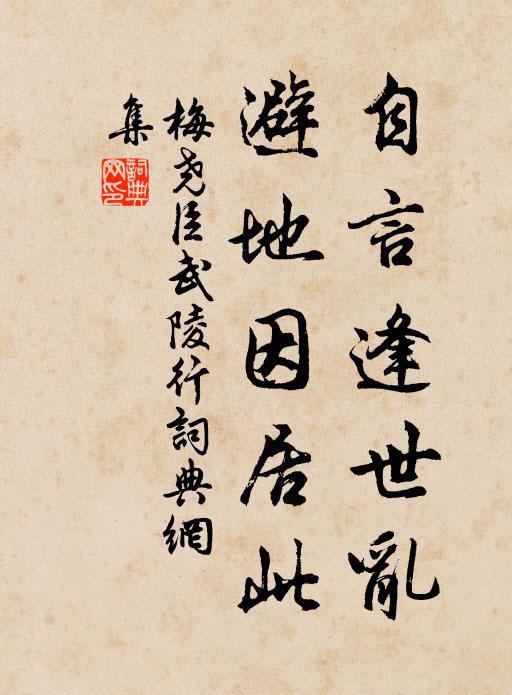 自言逢世亂
避地因居此
梅尧臣武陵行詞典網
集
詞典網印